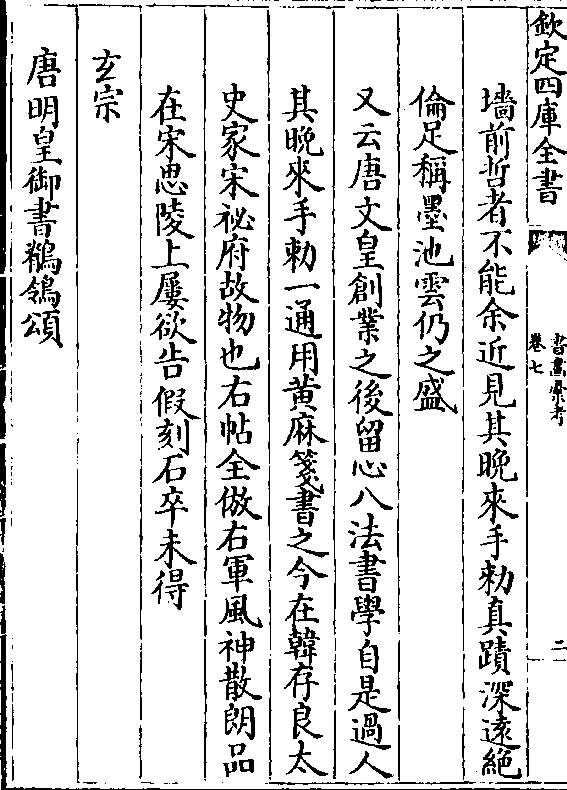 欽定四庫全書
書畫彙考
卷七
二
墻前哲者不能余近見其晚來手勅真蹟深逺絶
倫足稱墨池雲仍之盛
又云唐文皇創業之後留心八法書學自是過人
其晚來手勅一通用黄麻箋書之今在韓存良太
史家宋祕府故物也右帖全倣右軍風神散朗品
在宋思陵上屢欲告假刻石卒未得
玄宗
唐明皇御書鶺鴒頌